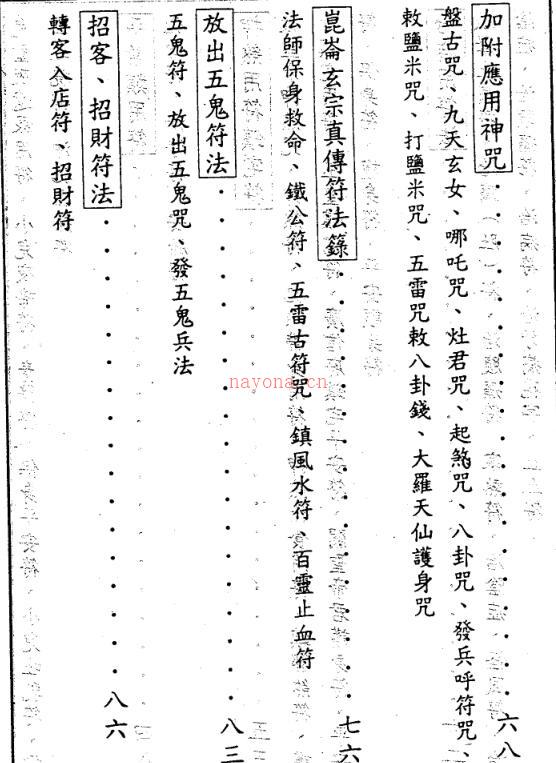 加附應用神咒‧‧‧‧‧‧‧‧‧‧‧‧‧‧‧六八
盤古咒、九天玄女、哪吒咒、灶君咒、起煞咒、八卦咒、發兵呼符咒、
敕鹽米咒、打鹽米咒、五雷咒敕八卦錢、大羅天仙護身咒
崑崙玄宗真傳符法錄‧‧‧‧‧‧‧‧‧‧‧‧七六
法師保身救命、鐵公符、五雷古符咒、鎮風水符、百靈止血符
放出五鬼符法‧‧‧‧‧‧‧‧‧‧‧‧‧‧‧‧八三
五鬼符、放出五鬼咒、發五鬼兵法
招客、招財符法‧‧‧‧‧‧‧‧‧‧‧‧‧‧‧八六
轉客入店符、招財符
nayona.cn